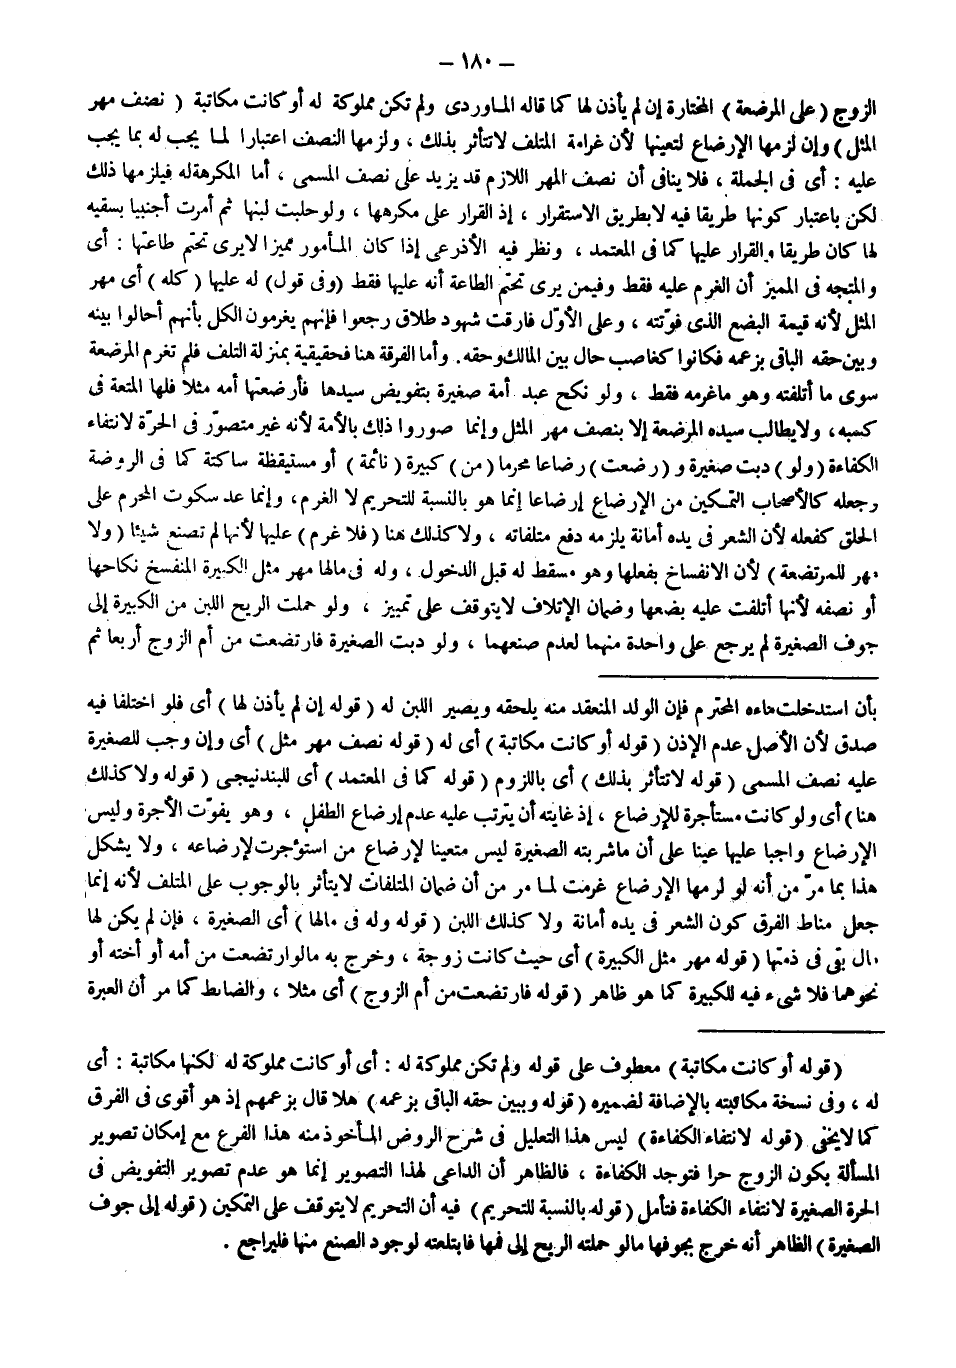 – ١٨٠ –
الزوج (على المرضعة) المختارة إن لم يأذن لها كما قاله المـاوردى ولم تكن مملوكة له أو كانت مكاتبة ( نصف مهر
المثل) وإن لزمها الإرضاع لتعينها لأن غرامة المتلف لاتتأثر بذلك ، ولزمها النصف اعتبارا لمـا يجب له بما يجب
عليه : أى فى الجملة ، فلا ينافى أن نصف المهر اللازم قد يزيد على نصف المسمى ، أما المكرهة له فيلزمها ذلك
لكن باعتبار كونها طريقا فيه لابطريق الاستقرار ، إذ القرار على مكرهها ، ولوحلبت لبنها ثم أمرت أجنبيا بسقيه
لها كان طريقا والقرار عليها كما فى المعتمد ، ونظر فيه الأذرعى إذا كان المـأمور مميزا لايرى تحتم طاعتها : أى
والمتجه فى المميز أن الغرم عليه فقط وفيمن يرى تحتم الطاعة أنه عليها فقط (وفى قول) له عليها (كله) أى مهر
المثل لأنه قيمة البضع الذى فوّتته ، وعلى الأوّل فارقت شهود طلاق رجعوا فإنهم يغرمون الكل بأنهم أحالوا بينه
وبين حقه الباقى بزعمه فكانوا كغاصب حال بين المالك وحقه. وأما الفرقة هنا فحقيقية بمنزلة التلف فلم تغرم المرضعة
سوى ما أتلفته وهو ماغرمه فقط ، ولو نكح عبد أمة صغيرة بتفويض سيدها فأرضعتها أمه مثلا فلها المتعة فى
كسبه، ولايطالب سيده المرضعة إلا بنصف مهر المثل وإنما صوروا ذلك بالأمة لأنه غير متصوّر فى الحرّة لانتفاء
الكفاءة (ولو) دبت صغيرة و (رضعت) رضاعا محرما (من) كبيرة (نائمة) أو مستيقظة ساكتة كما فى الروضة
وجعله كالأصحاب التمكين من الإرضاع إرضاعا إنما هو بالنسبة للتحريم لا الغرم، وإنما عد سكوت المحرم على
الحلق كفعله لأن الشعر فى يده أمانة يلزمه دفع متلفاته ، ولا كذلك هنا (فلا غرم) عليها لأنها لم تصنع شيئا (ولا
مهر للمرتضعة) لأن الانفساخ بفعلها وهو مسقط له قبل الدخول ، وله فى مالها مهر مثل الكبيرة المنفسخ نكاحها
أو نصفه لأنها أتلفت عليه بضعها وضمان الإتلاف لايتوقف على تمييز ، ولو حملت الريح اللبن من الكبيرة إلى
جوف الصغيرة لم يرجع على واحدة منهما لعدم صنعهما ، ولو دبت الصغيرة فارتضعت من أم الزوج أربعا ثم
بأن استدخلت ماءه المحترم فإن الولد المنعقد منه يلحقه ويصير اللبن له ( قوله إن لم يأذن لها ) أى فلو اختلفا فيه
صدق لأن الأصل عدم الإذن ( قوله أو كانت مكاتبة ) أى له ( قوله نصف مهر مثل ) أى وإن وجب للصغيرة
عليه نصف المسمى ( قوله لاتتأثر بذلك ) أى باللزوم ( قوله كما فى المعتمد ) أى للبندنيجى ( قوله ولا كذلك
هنا) أى ولو كانت مستأجرة للإرضاع ، إذ غايته أن يترتب عليه عدم إرضاع الطفل ، وهو يفوّت الأجرة وليس
الإرضاع واجبا عليها عينا على أن ماشربته الصغيرة ليس متعينا لإرضاع من استؤجرت لإرضاعه ، ولا يشكل
هذا بما مرّ من أنه لو لزمها الإرضاع غرمت لمـا مر من أن ضمان المتلفات لايتأثر بالوجوب على المتلف لأنه إنما
جعل مناط الفرق كون الشعر فى يده أمانة ولا كذلك اللبن ( قوله وله فى مالها ) أى الصغيرة ، فإن لم يكن لها
مال بقى فى ذمتها ( قوله مهر مثل الكبيرة ) أى حيث كانت زوجة ، وخرج به مالوارتضعت من أمه أو أخته أو
نحوهما فلا شىء فيه للكبيرة كما هو ظاهر ( قوله فارتضعت من أم الزوج ) أى مثلا ، والضابط كما مر أن العبرة
(قوله أو كانت مكاتبة) معطوف على قوله ولم تكن مملوكة له : أى أو كانت مملوكة له لكنها مكاتبة : أى
له ، وفى نسخة مكاتبته بالإضافة لضميره (قوله وبين حقه الباقى بزعمه) هلا قال بزعمهم إذ هو أقوى فى الفرق
كما لايخفى (قوله لانتفاء الكفاءة) ليس هذا التعليل فى شرح الروض المـأخوذ منه هذا الفرع مع إمكان تصوير
المسألة بكون الزوج حرا فتوجد الكفاءة ، فالظاهر أن الداعى لهذا التصوير إنما هو عدم تصوير التفويض فى
الحرة الصغيرة لانتفاء الكفاءة فتأمل (قوله بالنسبة للتحريم) فيه أن التحريم لايتوقف على التمكين (قوله إلى جوف
الصغيرة) الظاهر أنه خرج بجوفها مالو حملته الريح إلى فمها فابتلعته لوجود الصنع منها فليراجع .